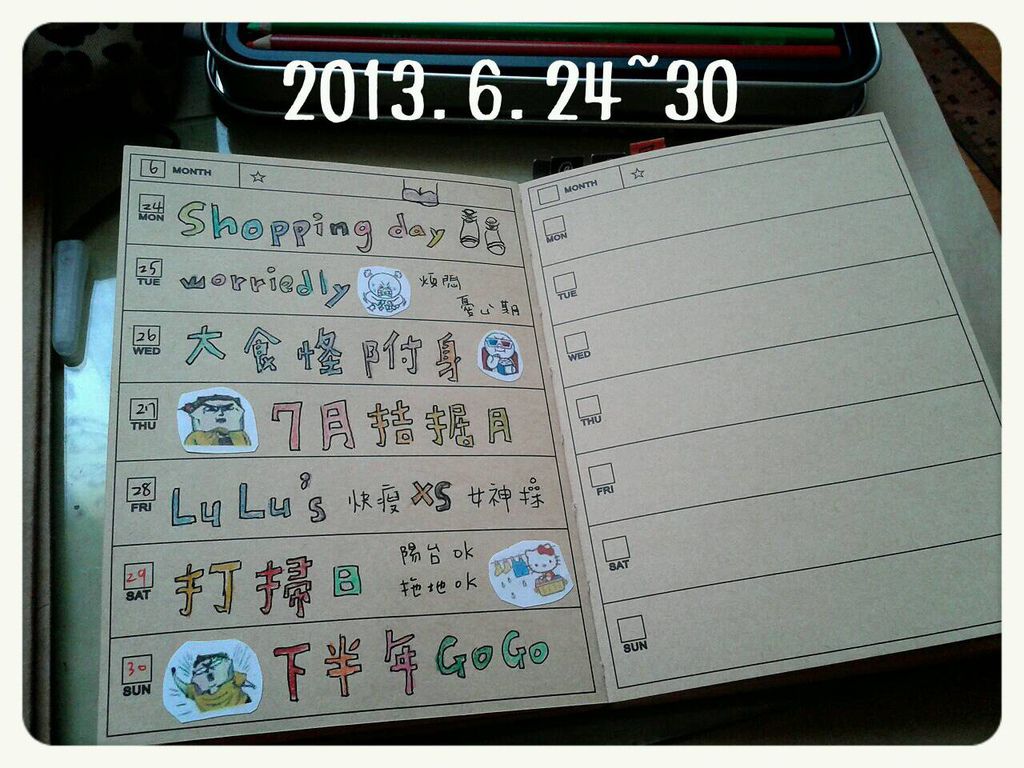 2013.6.24~30
6 MONTH
24 MON Shopping day
25 TUE worriedly 煩悶
憂心期
26 WED 大食怪附身
27 THU 7月拮据月
28 FRI LuLu's 快瘦 XS 女神操
29 SAT 打掃日 陽台OK
拖地OK
30 SUN 下半年GoGo
MONTH
MON
TUE
WED
THU
FRI
SAT
SUN